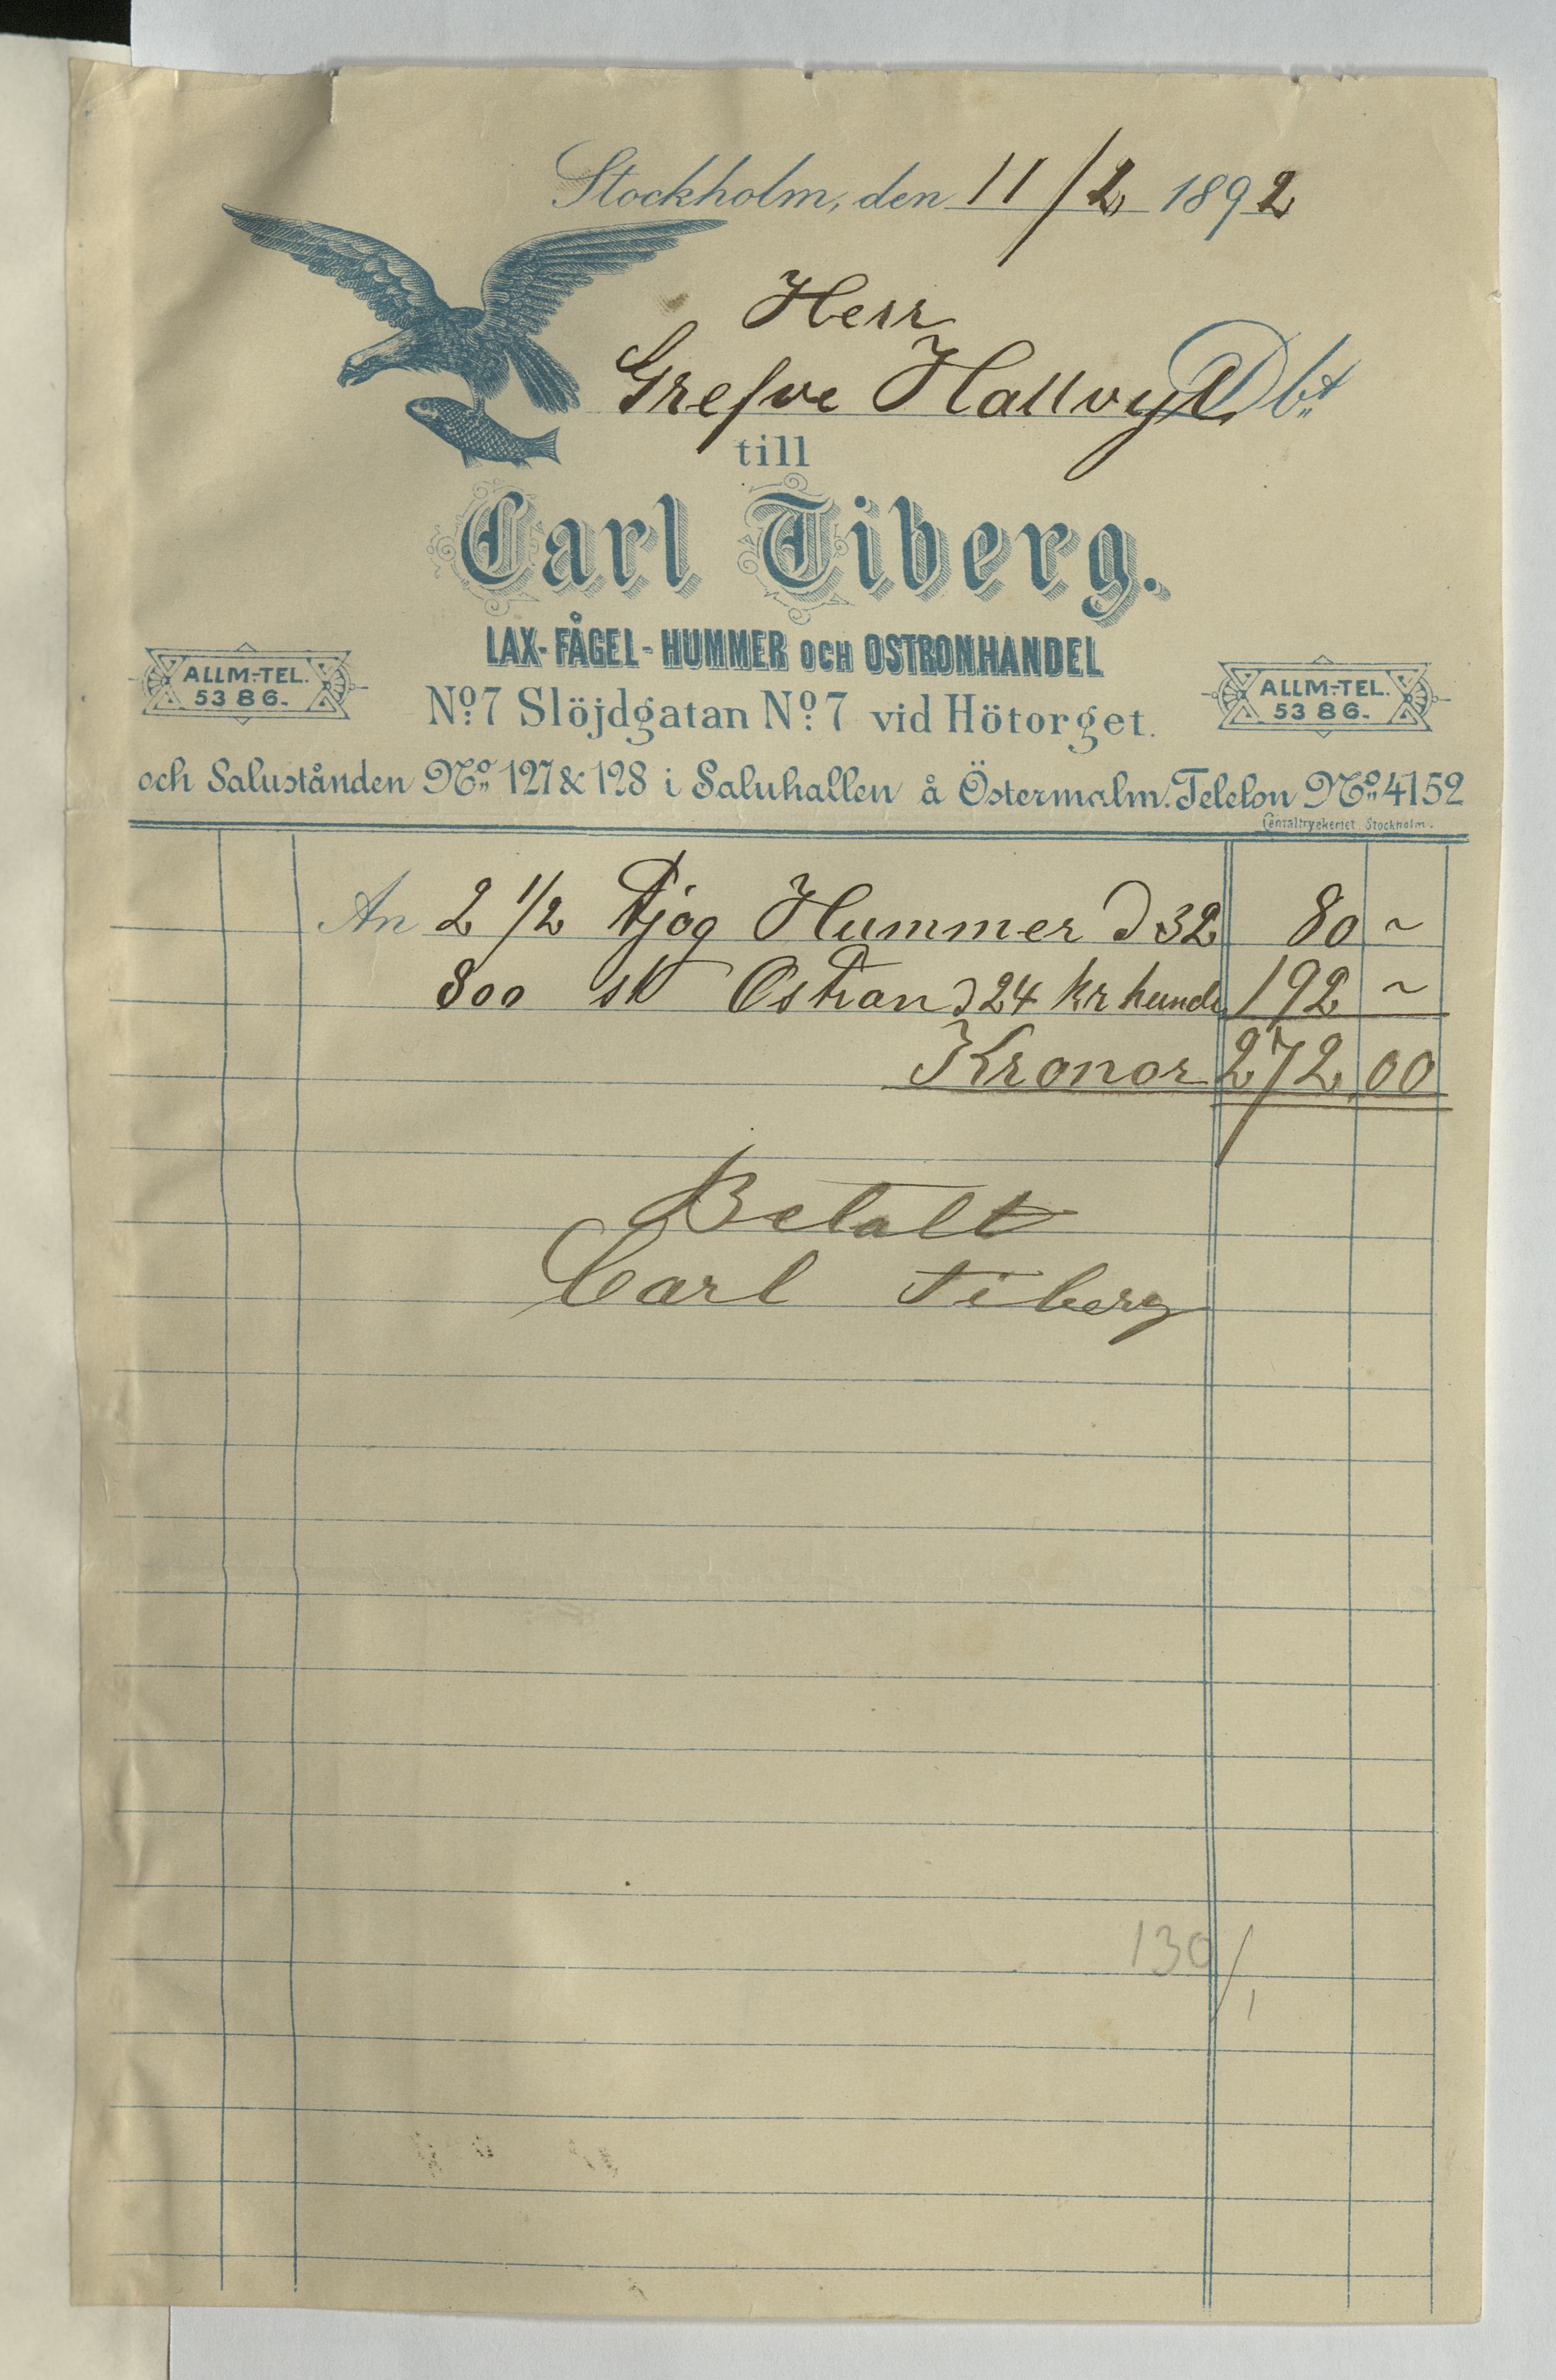 Stockholm, den 11/2 1892
Herr
Grefve Hallwyl Dbt
till
Carl Tiberg.
LAX- FÅGEL- HUMMER OCH OSTRONHANDEL
ALLM-TEL. 5386.
No 7 Slöjdgatan No 7 vid Hötorget.
ALLM-TEL. 5386.
och Salustånden No 127 & 128 i Saluhallen å Östermalm. Telefon No 4152
Centraltryckeriet, Stockholm.
An 2 1/2 Tjog Hummer à 32 80 ~
800 st Ostron à 24 kr hundr 192 ~
Kronor 272,00
Betalt
Carl Tiberg
130/1